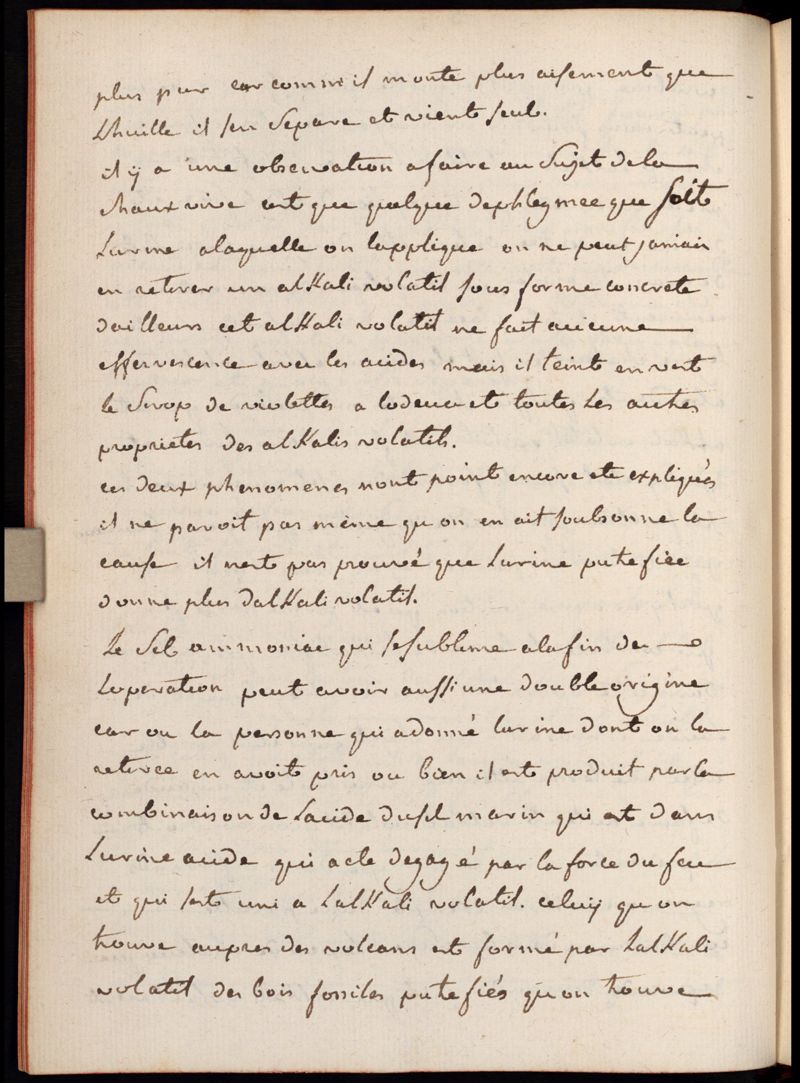 plus pur car comme il monte plus aisement que
Lhuille il sen separe et vient seul.
il y a une observation a faire au Sujet de la
chaux vive cest que quelque dephlegmee que soit
Lurine alaquelle on lapplique on ne peut jamais
en retirer un alKali volatil sous forme concrete
dailleurs cet alKali volatil ne fait aucune
effervescence avec les acides mais il teint en vert
le Sirop de violettes a lodeur et toutes Les autres
proprietes des alKalis volatils.
ces deux phenomenes nont point encore ete expliqués
il ne paroit pas même quon en ait soubsonne la
cause il nest pas prouvé que Lurine putefiée
donne plus dalKali volatil.
Le Sel ammoniac qui se sublime alafin de
Loperation peut avoir aussi une double origine
car ou la personne qui adonné lurine dont on la
retiree en avoit pris ou bien il est produit par la
combinaison de Lacide du sel marin qui est dans
Lurine acide qui aete degagé par la force du feu
et qui sest uni a LalKali volatil. celuy quon
trouve aupres des volcans est formé par LalKali
volatil des bois fossiles putefiés quon trouve